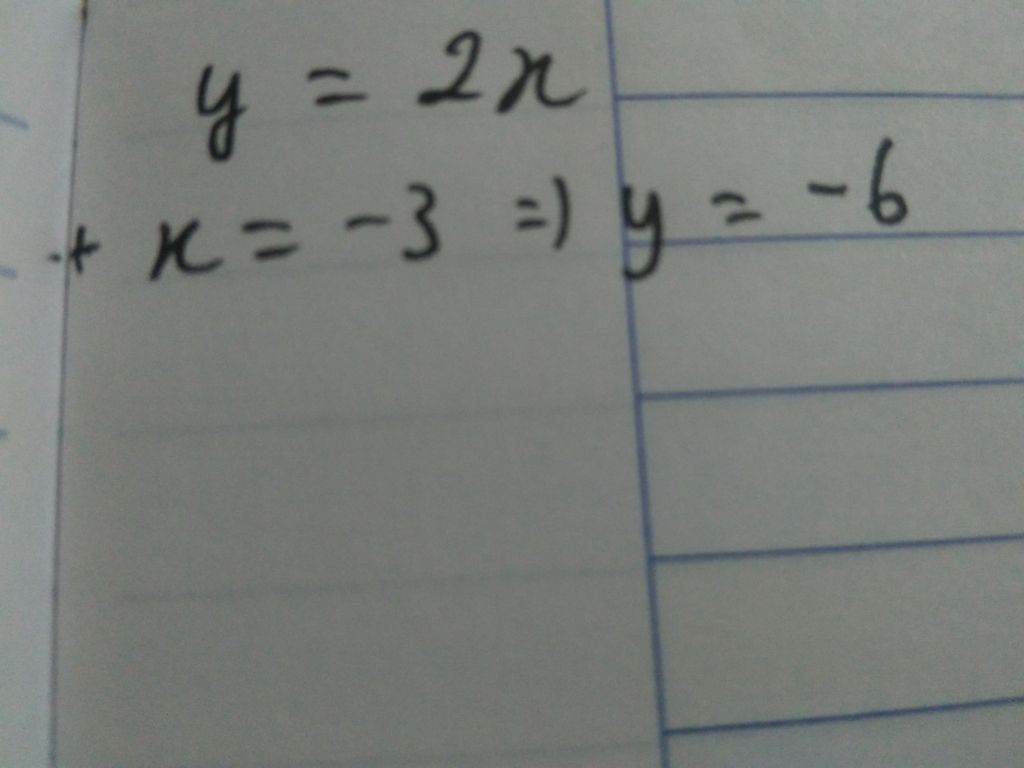 y = 2x
+ x = -3 => y = -6